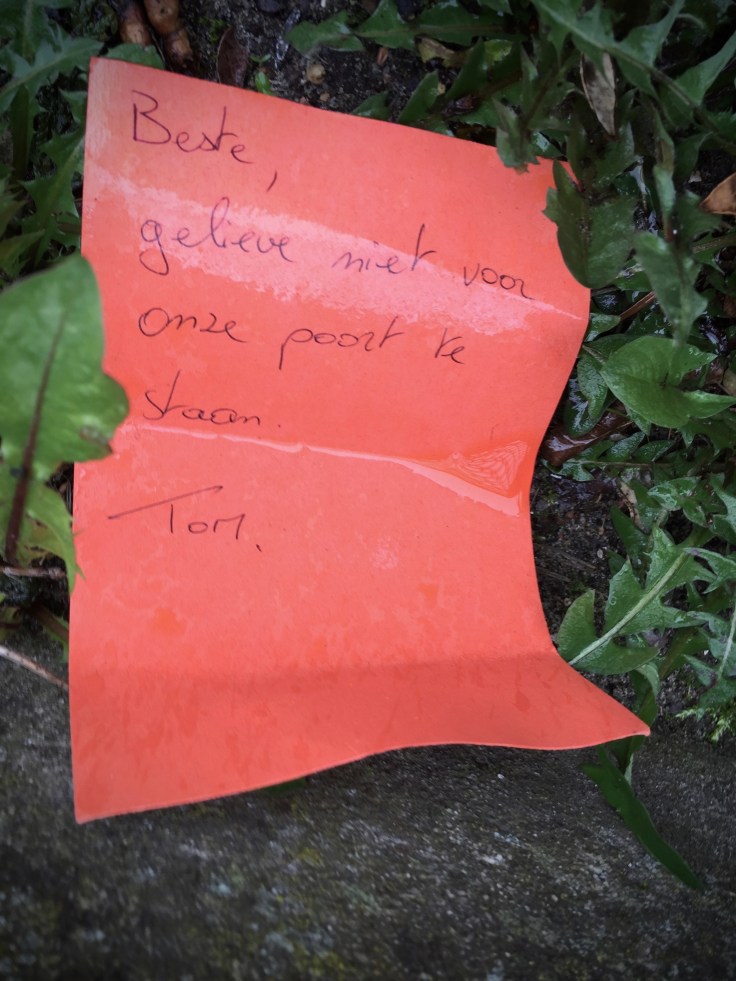 Beste,
gelieve niet voor
onze poort te
staan.
Tom.